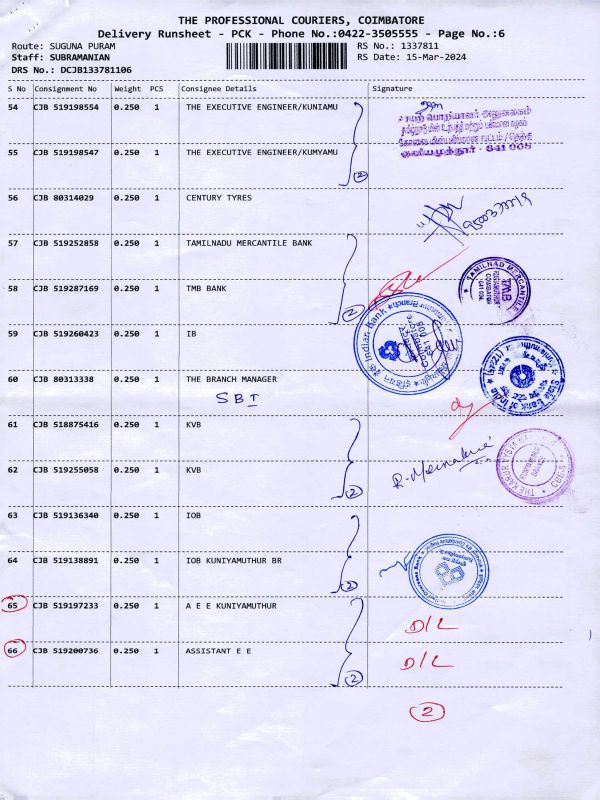 THE PROFESSIONAL COURIERS, COIMBATORE
Delivery Runsheet - PCK - Phone No.:0422-3505555 - Page No.:6
Route: SUGUNA PURAM
RS No.: 1337811
Staff: SUBRAMANIAN
RS Date: 15-Mar-2024
DRS No.: DCJB133781106
S No Consignment No Weight PCS Consignee Details Signature
54 CJB 519198554 0.250 1 THE EXECUTIVE ENGINEER/KUNIAMU
55 CJB 519198547 0.250 1 THE EXECUTIVE ENGINEER/KUMYAMU
2
56 CJB 80314029 0.250 1 CENTURY TYRES
57 CJB 519252858 0.250 1 TAMILNADU MERCANTILE BANK
58 CJB 519287169 0.250 1 TMB BANK
2
59 CJB 519260423 0.250 1 IB
60 CJB 80313338 0.250 1 THE BRANCH MANAGER
SBI
61 CJB 518875416 0.250 1 KVB
62 CJB 519255058 0.250 1 KVB
2
63 CJB 519136340 0.250 1 IOB
64 CJB 519138891 0.250 1 IOB KUNIYAMUTHUR BR
2
65 CJB 519197233 0.250 1 A E E KUNIYAMUTHUR D/L
66 CJB 519200736 0.250 1 ASSISTANT E E D/L
2
2
குனியமுத்தூர் - 641 008
TAMILNAD MERCANTILE
TMB
Indian Bank
State Bank of India